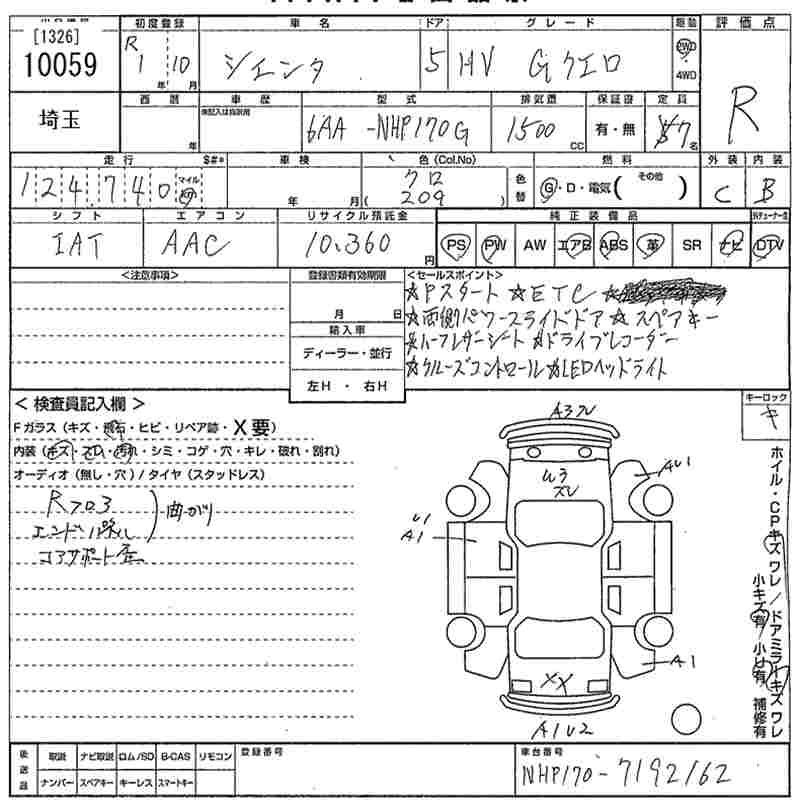 [1326]
10059
初度登録
R
1 年 10 月
車名
シエンタ
ドア
5
グレード
HV Gクエロ
駆動
2WD
4WD
評価点
R
埼玉
西暦
年
車歴
型式
6AA-NHP170G
排気量
1500 CC
保証書
有・無
定員
7名
走行
124,740
マイル
km
$#*
車検
年 月
色(Col.No)
クロ
( 209 )
色替
燃料
G・D・電気( その他 )
外装
C
内装
B
シフト
IAT
エアコン
AAC
リサイクル預託金
10,360 円
純正装備品
PS PW AW エアB ABS 革 SR ナビ DTV
<注意事項>
登録書類有効期限
月 日
輸入車
ディーラー・並行
左H・右H
<セールスポイント>
☆Pスタート ☆ETC
☆両側パワースライドドア ☆スペアキー
☆ハーフレザーシート ☆ドライブレコーダー
☆クルーズコントロール ☆LEDヘッドライト
<検査員記入欄>
Fガラス(キズ・飛石・ヒビ・リペア跡・X要)
内装(キズ・スレ・汚れ・シミ・コゲ・穴・キレ・破れ・割れ)
オーディオ(無し・穴)/タイヤ(スタッドレス)
Rフロ3
コアサポート歪
曲がり
キーロック
キ
ホイル・CPキズワレ/ドアミラーキズワレ
小キズ有 小U有 補修有
AU1
U1
A1
A1
XX
A1U2
後送品
取説 ナビ取説 ロム/SD B-CAS リモコン
ナンバー スペアキー キーレス スマートキー
登録番号
車台番号
NHP170-7192162